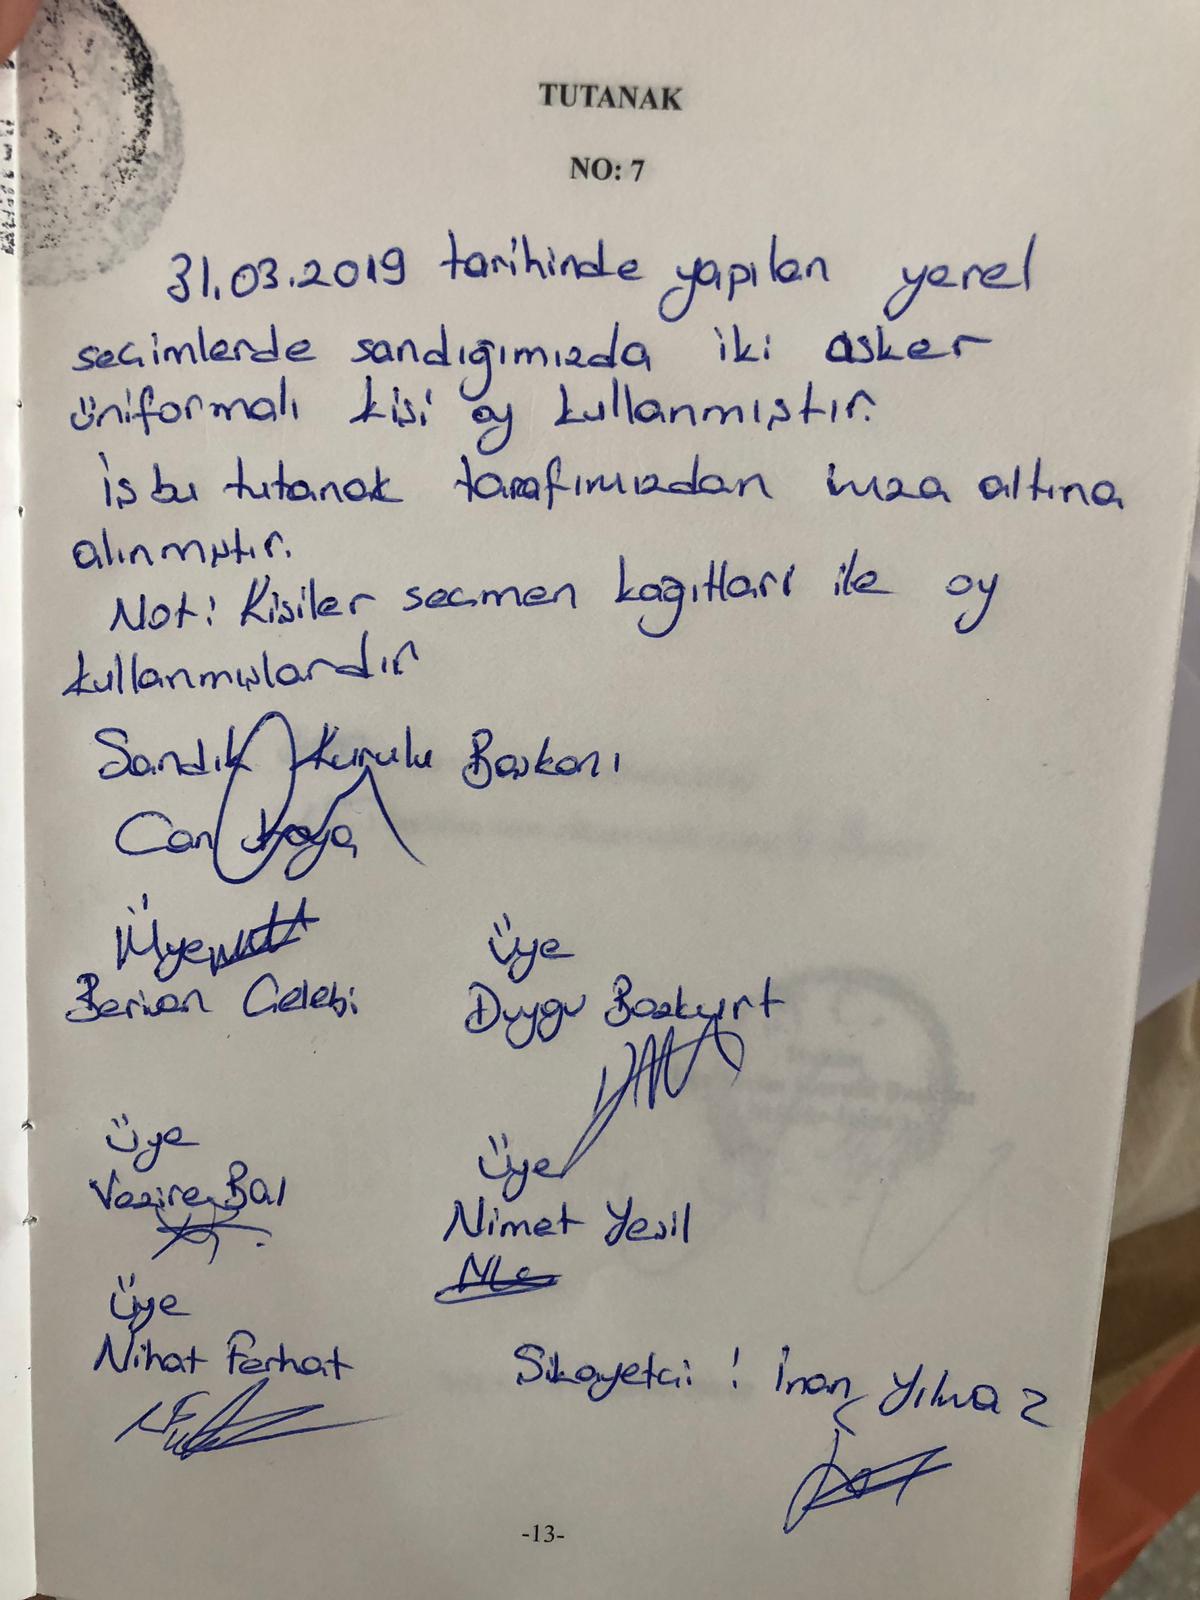 TUTANAK
NO: 7
31.03.2019 tarihinde yapılan yerel
seçimlerde sandığımızda iki asker
üniformalı kişi oy kullanmıştır.
İş bu tutanak tarafımızdan imza altına
alınmıştır.
Not: Kişiler seçmen kağıtları ile oy
kullanmışlardır
Sandık Kurulu Başkanı
Can Kaya
Üye Üye
Berivan Çelebi Duygu Bozkurt
Üye Üye
Vezire Bal Nimet Yeşil
Üye
Nihat Ferhat Şikayetçi: İnanç Yılmaz
-13-